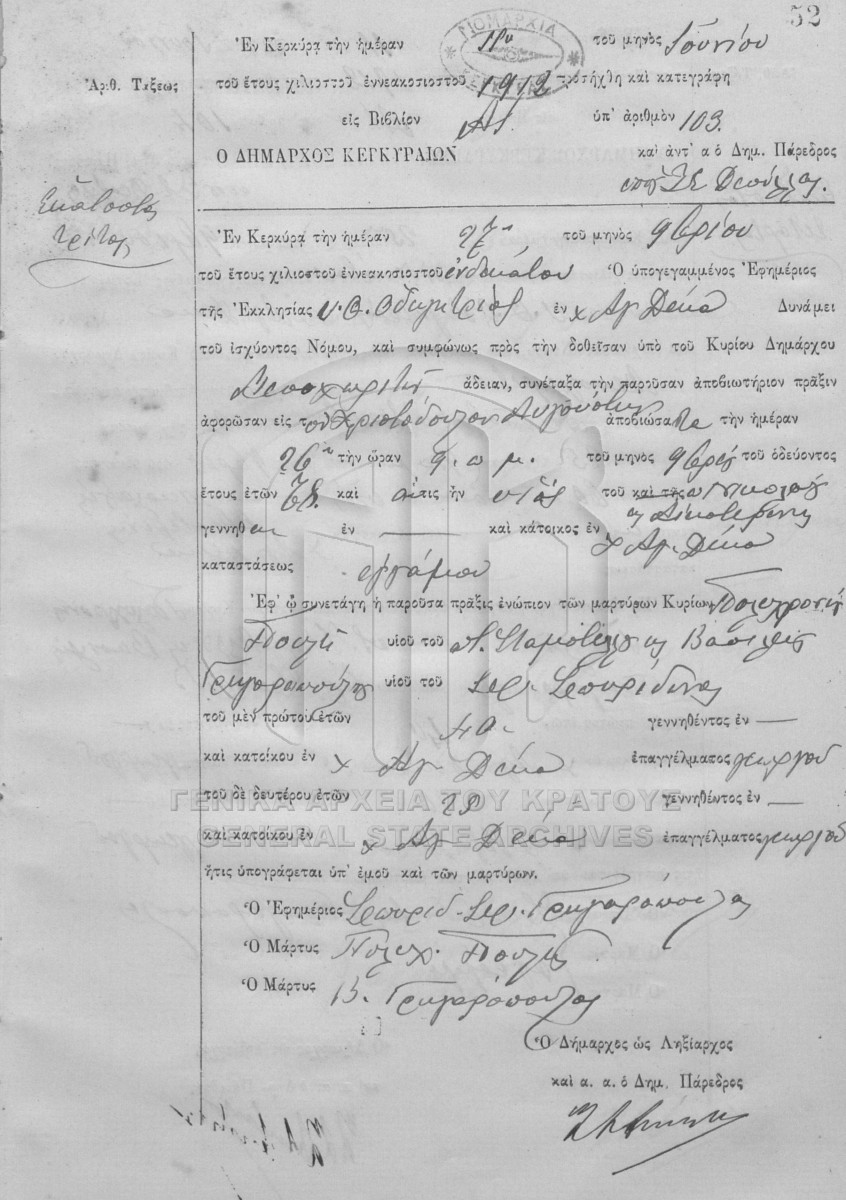 52
ΝΟΜΑΡΧΙΑ
Ἐν Κερκύρᾳ τὴν ἡμέραν 18ην τοῦ μηνὸς Ἰουνίου
Ἀριθ. Τάξεως
τοῦ ἔτους χιλιοστοῦ ἐννεακοσιοστοῦ 1912 προσήχθη καὶ κατεγράφη
εἰς Βιβλίον Α ὑπ' ἀριθμὸν 103.
Ο ΔΗΜΑΡΧΟΣ ΚΕΡΚΥΡΑΙΩΝ καὶ ἀντ' α ὁ Δημ. Πάρεδρος
Ἑκατοστὸς
τρίτος
Ἐν Κερκύρᾳ τὴν ἡμέραν 27η τοῦ μηνὸς 9βρίου
τοῦ ἔτους χιλιοστοῦ ἐννεακοσιοστοῦ ἑνδεκάτου Ὁ ὑπογεγαμμένος Ἐφημέριος
τῆς Ἐκκλησίας Υ. Θ. Οδηγητρίας ἐν χ Ἁγ Δέκα Δυνάμει
τοῦ ἰσχύοντος Νόμου, καὶ συμφώνως πρὸς τὴν δοθεῖσαν ὑπὸ τοῦ Κυρίου Δημάρχου
ἄδειαν, συνέταξα τὴν παροῦσαν ἀποβιωτήριον πρᾶξιν
ἀφορῶσαν εἰς τὸν Χριστόδουλον Αυγούστη ἀποβιώσαντα τὴν ἡμέραν
26η τὴν ὥραν 9. π μ. τοῦ μηνὸς 9βρίου τοῦ ὁδεύοντος
ἔτους ἐτῶν 78. καὶ ὅστις ἦν υἱὸς τοῦ καὶ τῆς Νικολάου
κ Αἰκατερίνης
γεννηθεὶς ἐν — καὶ κάτοικος ἐν χ Ἁγ. Δέκα
καταστάσεως ἐγγάμου
Ἐφ' ᾧ συνετάγη ἡ παροῦσα πρᾶξις ἐνώπιον τῶν μαρτύρων Κυρίων Πολυχρόνη
Πουλῆ υἱοῦ τοῦ Σταματέλλου κ Βασιλείου
Γρηγορόπουλος υἱοῦ τοῦ Σπυρίδωνος
τοῦ μὲν πρώτου ἐτῶν 40 γεννηθέντος ἐν —
καὶ κατοίκου ἐν χ Ἁγ Δέκα ἐπαγγέλματος γεωργοῦ
τοῦ δὲ δευτέρου ἐτῶν 28 γεννηθέντος ἐν —
ΓΕΝΙΚΑ ΑΡΧΕΙΑ ΤΟΥ ΚΡΑΤΟΥΣ
GENERAL STATE ARCHIVES
καὶ κατοίκου ἐν χ Ἁγ Δέκα ἐπαγγέλματος γεωργοῦ
ἥτις ὑπογράφεται ὑπ' ἐμοῦ καὶ τῶν μαρτύρων.
Ὁ Ἐφημέριος Σπυρίδ. Ιερ. Γρηγορόπουλος
Ὁ Μάρτυς Πολυχ. Πουλῆς
Ὁ Μάρτυς Β. Γρηγορόπουλος
Ὁ Δήμαρχος ὡς Ληξίαρχος
καὶ α. α. ὁ Δημ. Πάρεδρος